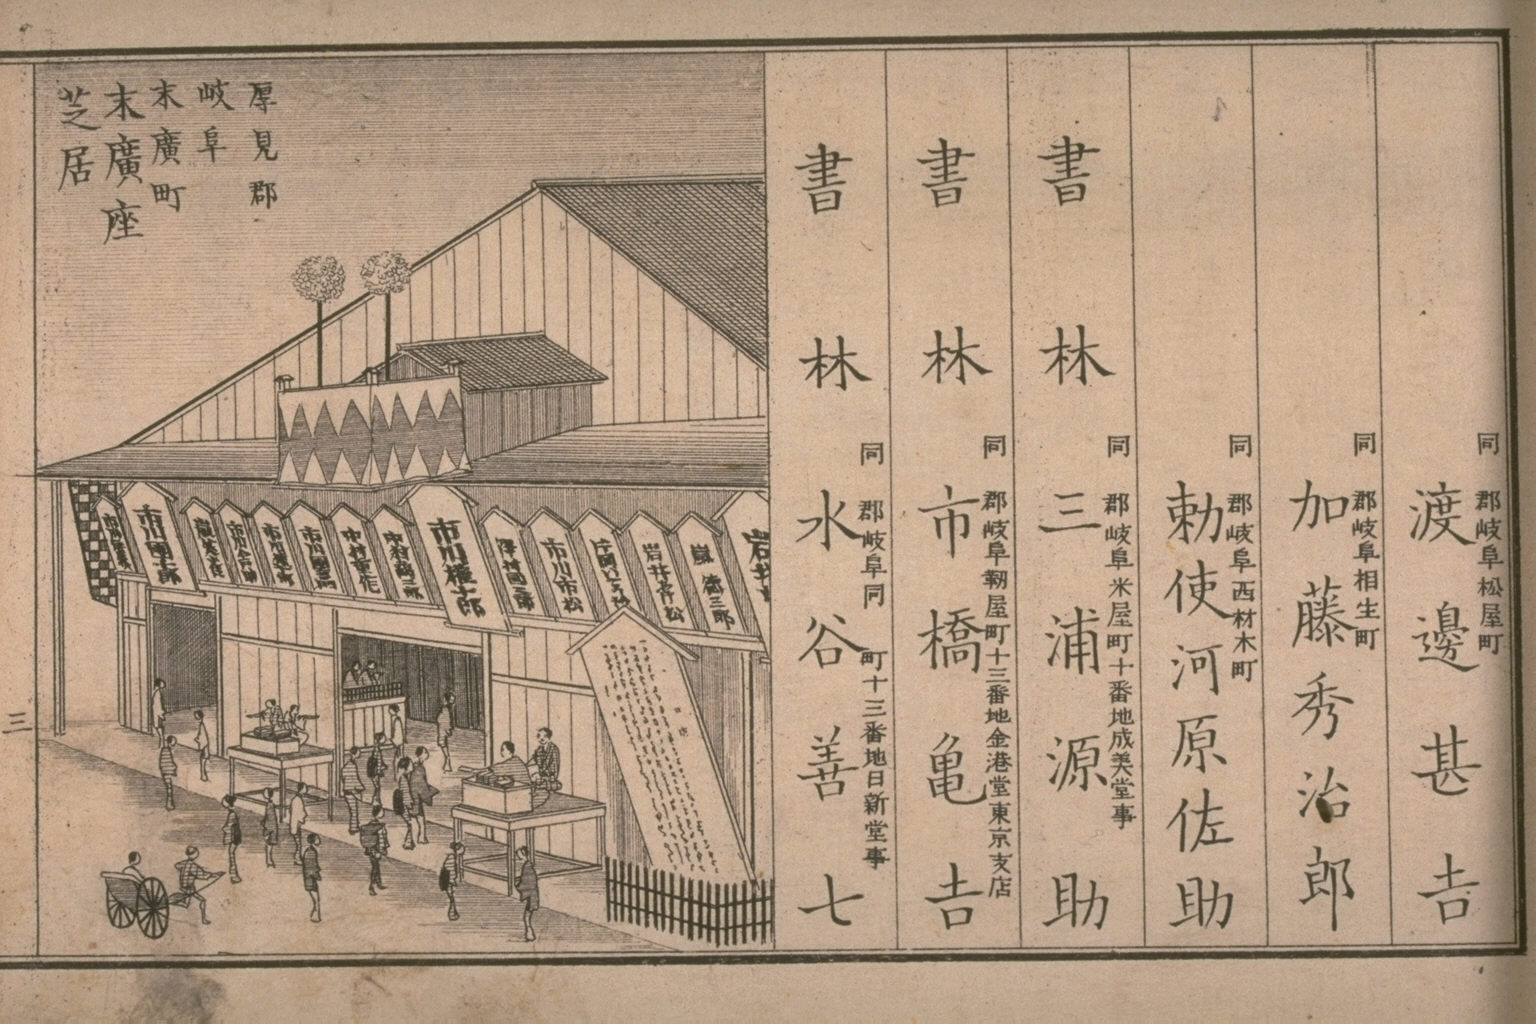 同郡岐阜松屋町
渡邊甚吉
同郡岐阜相生町
加藤秀治郎
同郡岐阜西材木町
勅使河原佐助
書林
同郡岐阜米屋町十番地成美堂事
三浦源助
書林
同郡岐阜靭屋町十三番地金港堂東京支店
市橋亀吉
書林
同郡岐阜同町十三番地日新堂事
水谷善七
厚見郡
岐阜
末廣町
末廣座
芝居
岩井
嵐德三郎
岩井斉松
片岡
市川市松
伊村國三郎
市川權十郎
中村鶴三郎
中村重花
市川團
市川
市川
市川團十郎
三